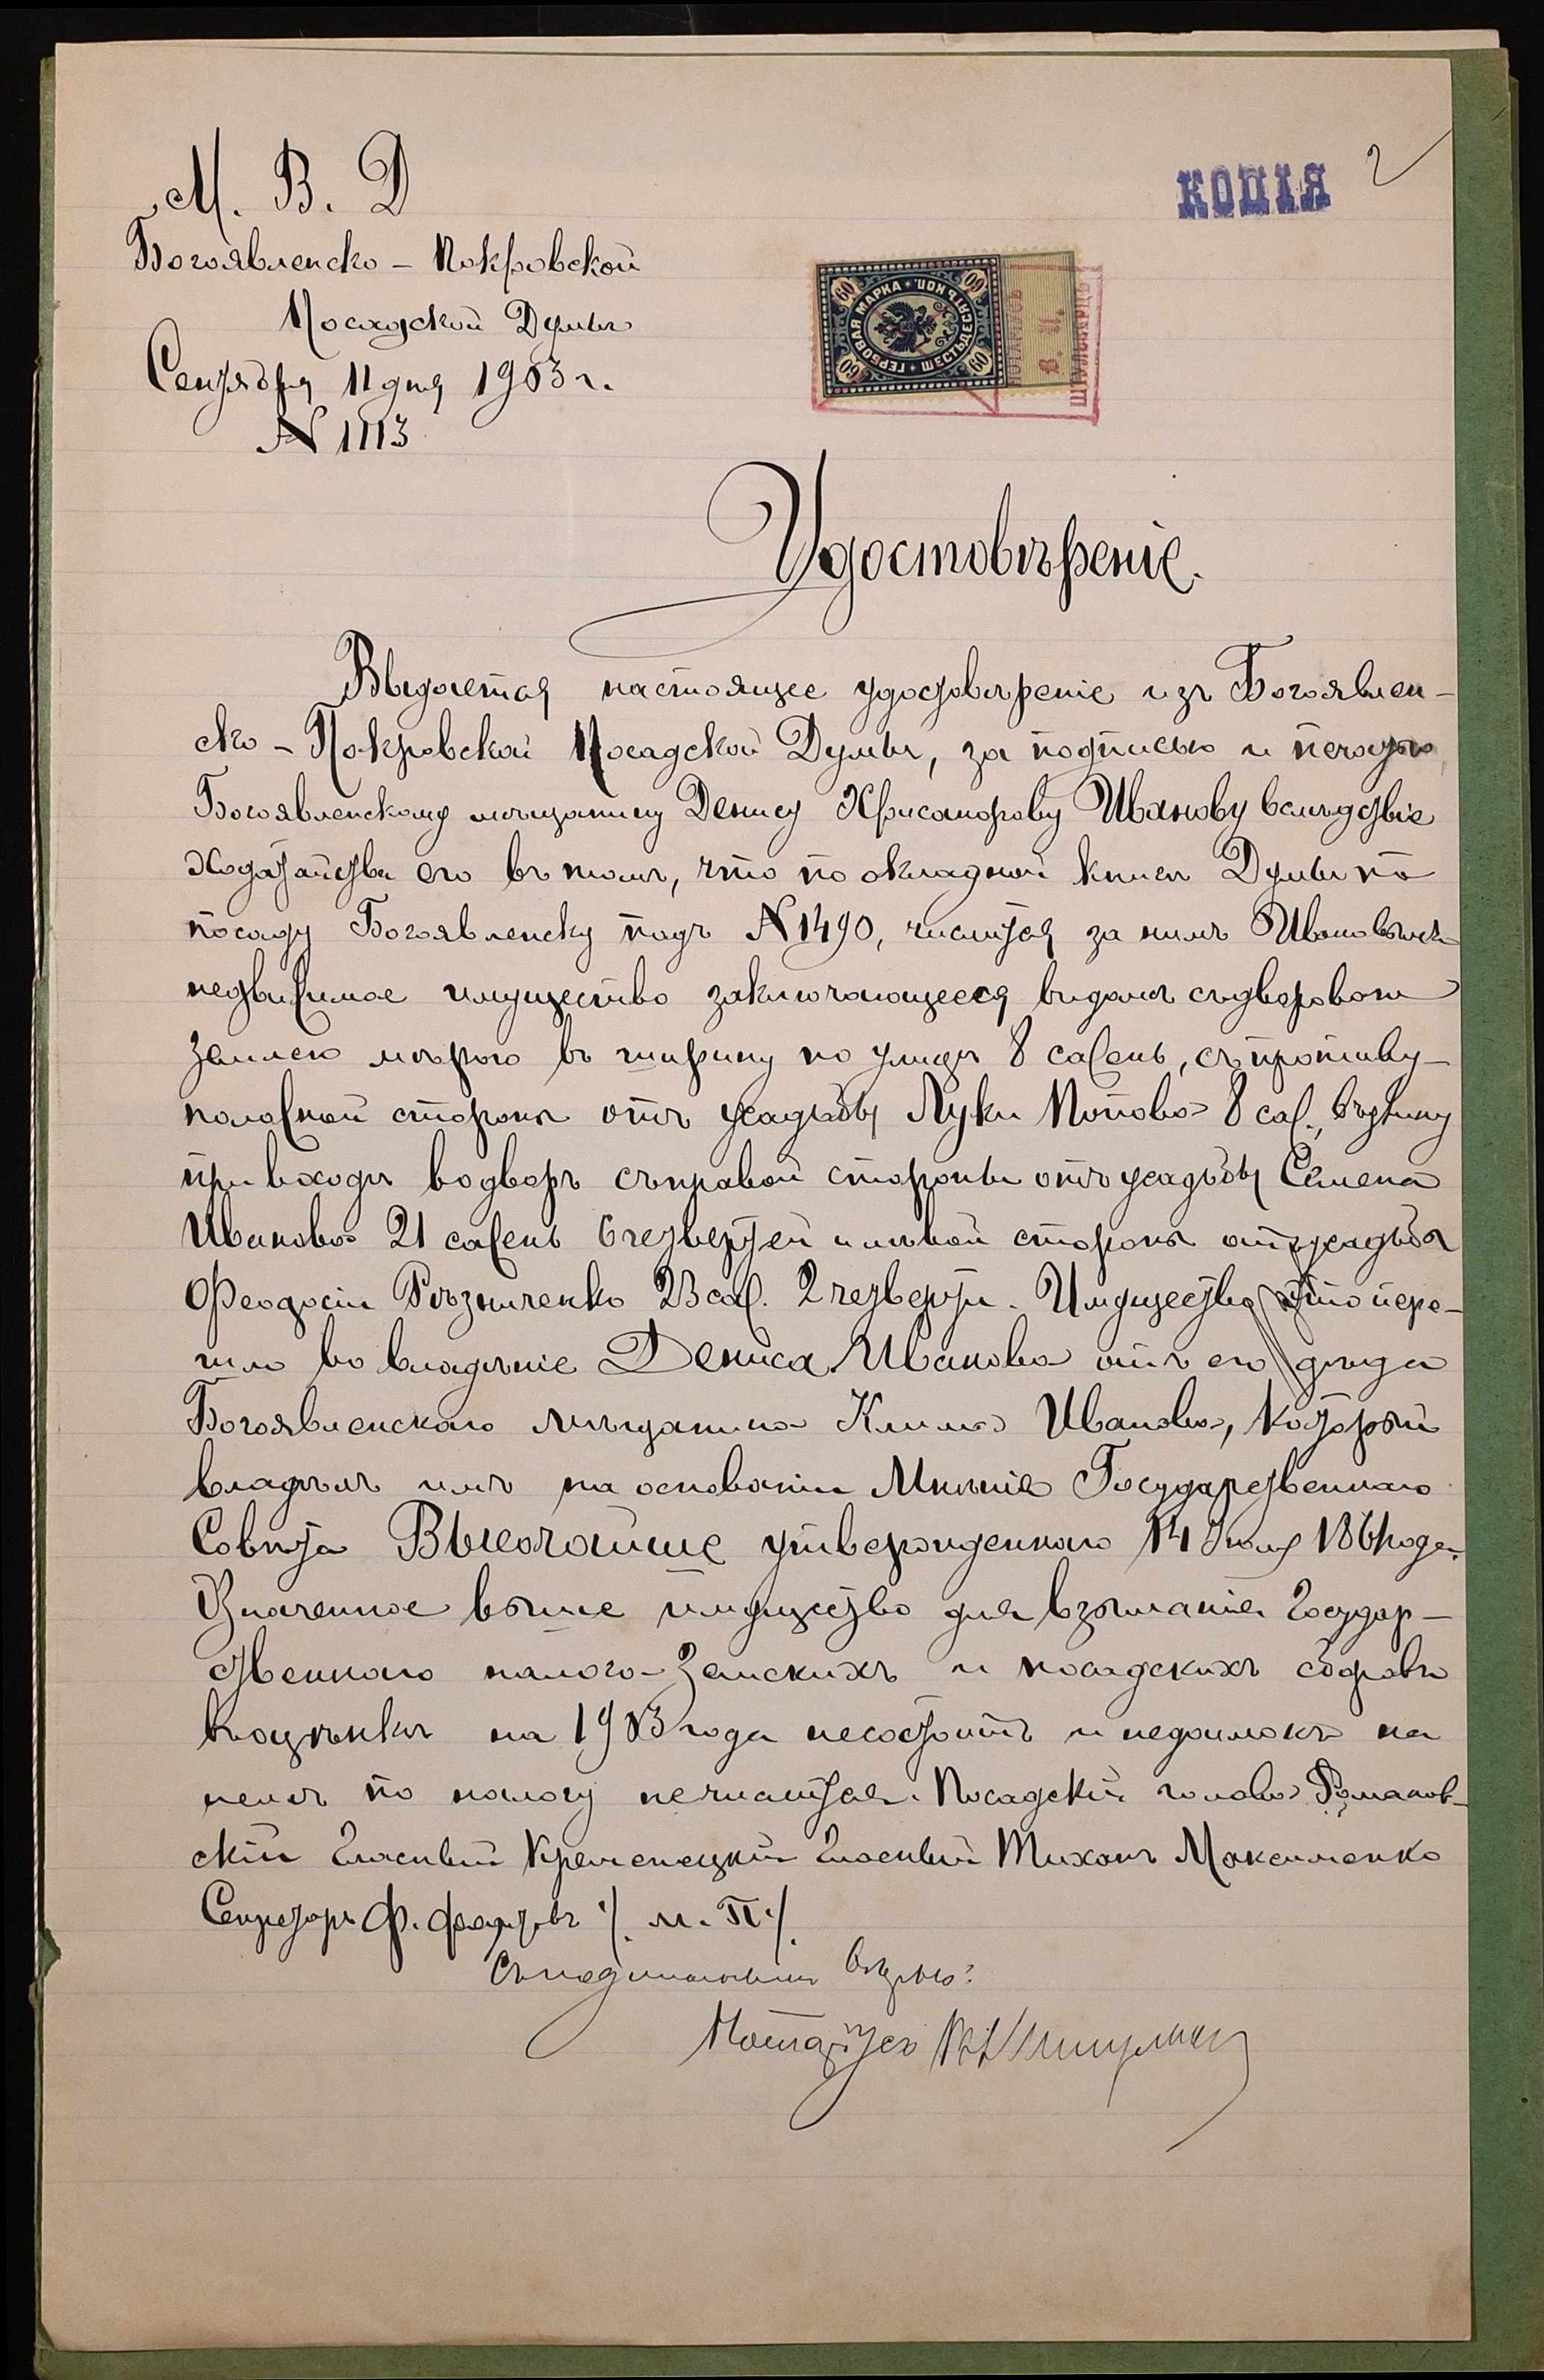 М. В. Д
КОПІЯ 2
Богоявленско - Покровской
Посадской Думы
Сентября 11 дня 1903 г.
N 1113
ГЕРБОВАЯ МАРКА • ШЕСТЬДЕСЯТЪ КОП.
60 60 60 60
НОТАРІУСЪ
В. И.
Удостовѣреніе.
Выдается настоящее удостовѣреніе изъ Богоявлен-
ско - Покровской Посадской Думы, за подписью и печатью
Богоявленскому мѣщанину Денису Хрисанфову Иванову вслѣдствіе
ходатайства его въ томъ, что по окладной книгѣ Думы по
посаду Богоявленску подъ N 1490, числится за нимъ Ивановымъ
недвижимое имущество заключающееся въ домѣ съ дворовою
землею мѣрою въ ширину по улицѣ 8 сажень, съ противу-
положной стороны отъ усадьбы Луки Попова 8 саж., въ длину
при входѣ во дворъ съ правой стороны отъ усадьбы Семена
Иванова 21 сажень 6 четвертей и лѣвой стороны отъ усадьбы
Феодосіи Рѣзниченко 23 саж. 2 четверти. Имущество это пере-
шло во владѣніе Дениса Иванова отъ его дѣда
Богоявленскаго мѣщанина Клима Иванова, который
владѣлъ имъ на основаніи Мнѣнія Государственнаго
Совѣта Высочайше утвержденнаго 14 Іюля 1861 года.
Означенное выше имущество для взыманія Государ-
ственнаго налога - Земскихъ и посадскихъ сборовъ
въ оцѣнкѣ на 1903 года несостоитъ и недоимокъ на
немъ по налогу нечислится. Посадскій голова Романов-
скій Гласный Кременецкій Гласный Тиханъ Максименко
Секретарь Ф. /. м. П. /.
Съ подлиннымъ вѣрно:
Нотаріусъ